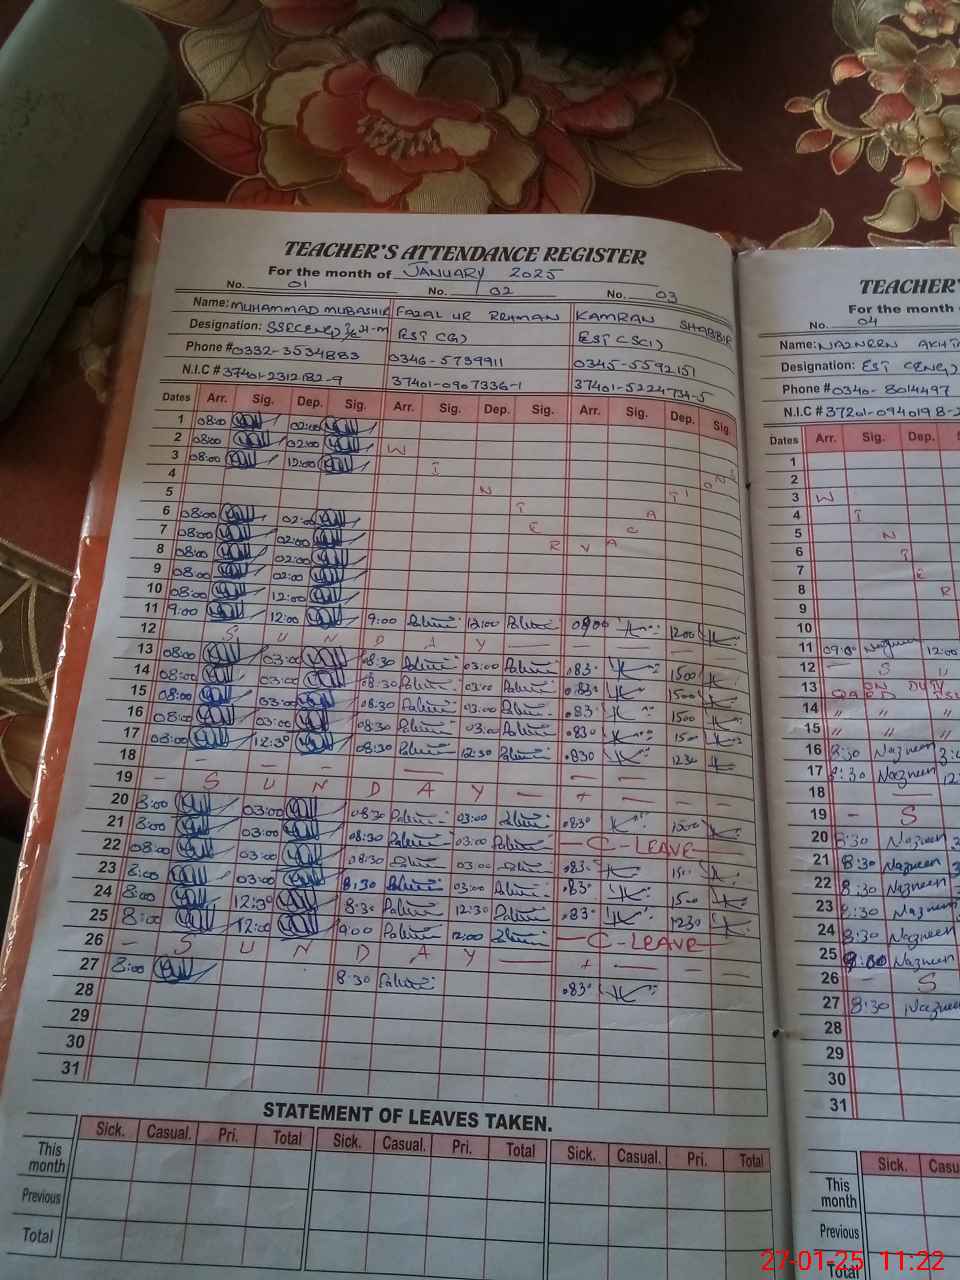 TEACHER'S ATTENDANCE REGISTER
For the month of JANUARY 2025
No. 01 No. 02 No. 03
Name: MUHAMMAD MUBASHIR FAZAL UR REHMAN KAMRAN SHABBIR
Designation: EST (G) EST (SCI)
Phone # 0332-3534883 0346-5739911 0345-5592151
N.I.C # 37401-2312182-9 37401-0907336-1 37401-5224734-5
Dates Arr. Sig. Dep. Sig. Arr. Sig. Dep. Sig. Arr. Sig. Dep. Sig.
1 08:00 02:00
2 08:00 02:00 W
3 08:00 12:00 I
4 N T I O N S
5 T A
6 08:00 02:00 E C
7 08:00 02:00 R V A
8 08:00 02:00
9 08:00 02:00
10 08:00 12:00
11 9:00 12:00 9:00 12:00 0900 1200
12 S U N D A Y — — — — —
13 08:00 03:00 08:30 03:00 083° 1500
14 08:00 03:00 08:30 03:00 083° 1500
15 08:00 03:00 08:30 03:00 083° 1500
16 08:00 03:00 08:30 03:00 0830 1500
17 08:00 12:30 08:30 12:30 0830 1230
18 — — — — — — — —
19 — S U N D A Y — + — — —
20 8:00 03:00 08:30 03:00 083° 1500
21 8:00 03:00 08:30 03:00 — C-LEAVE —
22 08:00 03:00 08:30 03:00 083° 1500
23 8:00 03:00 8:30 03:00 083° 1500
24 8:00 12:30 8:30 12:30 083° 1230
25 8:00 12:00 9:00 12:00 — C-LEAVE —
26 — S U N D A Y — + — — —
27 8:00 8:30 083°
28
29
30
31
STATEMENT OF LEAVES TAKEN.
Sick. Casual. Pri. Total Sick. Casual. Pri. Total Sick. Casual. Pri. Total
This month
Previous
Total
TEACHER'
For the month
No. 04
Name: NAZNEEN AKHT
Designation: EST (ENG)
Phone # 0340-8014497
N.I.C # 37201-0940198-2
Dates Arr. Sig. Dep.
1
2
3 W
4 I
5 N
6 T
7 E
8 R
9
10
11 09:00 Nazneen 12:00
12 — S U
13 ON DUTY
14 " " "
15 " " "
16 8:30 Nazneen
17 8:30 Nazneen 12
18 — — —
19 — S
20 8:30 Nazneen
21 8:30 Nazneen
22 8:30 Nazneen
23 8:30 Nazneen
24 8:30 Nazneen
25 9:00 Nazneen
26 — S
27 8:30 Nazneen
28
29
30
31
Sick. Casu
This month
Previous
Total
27-01-25 11:22